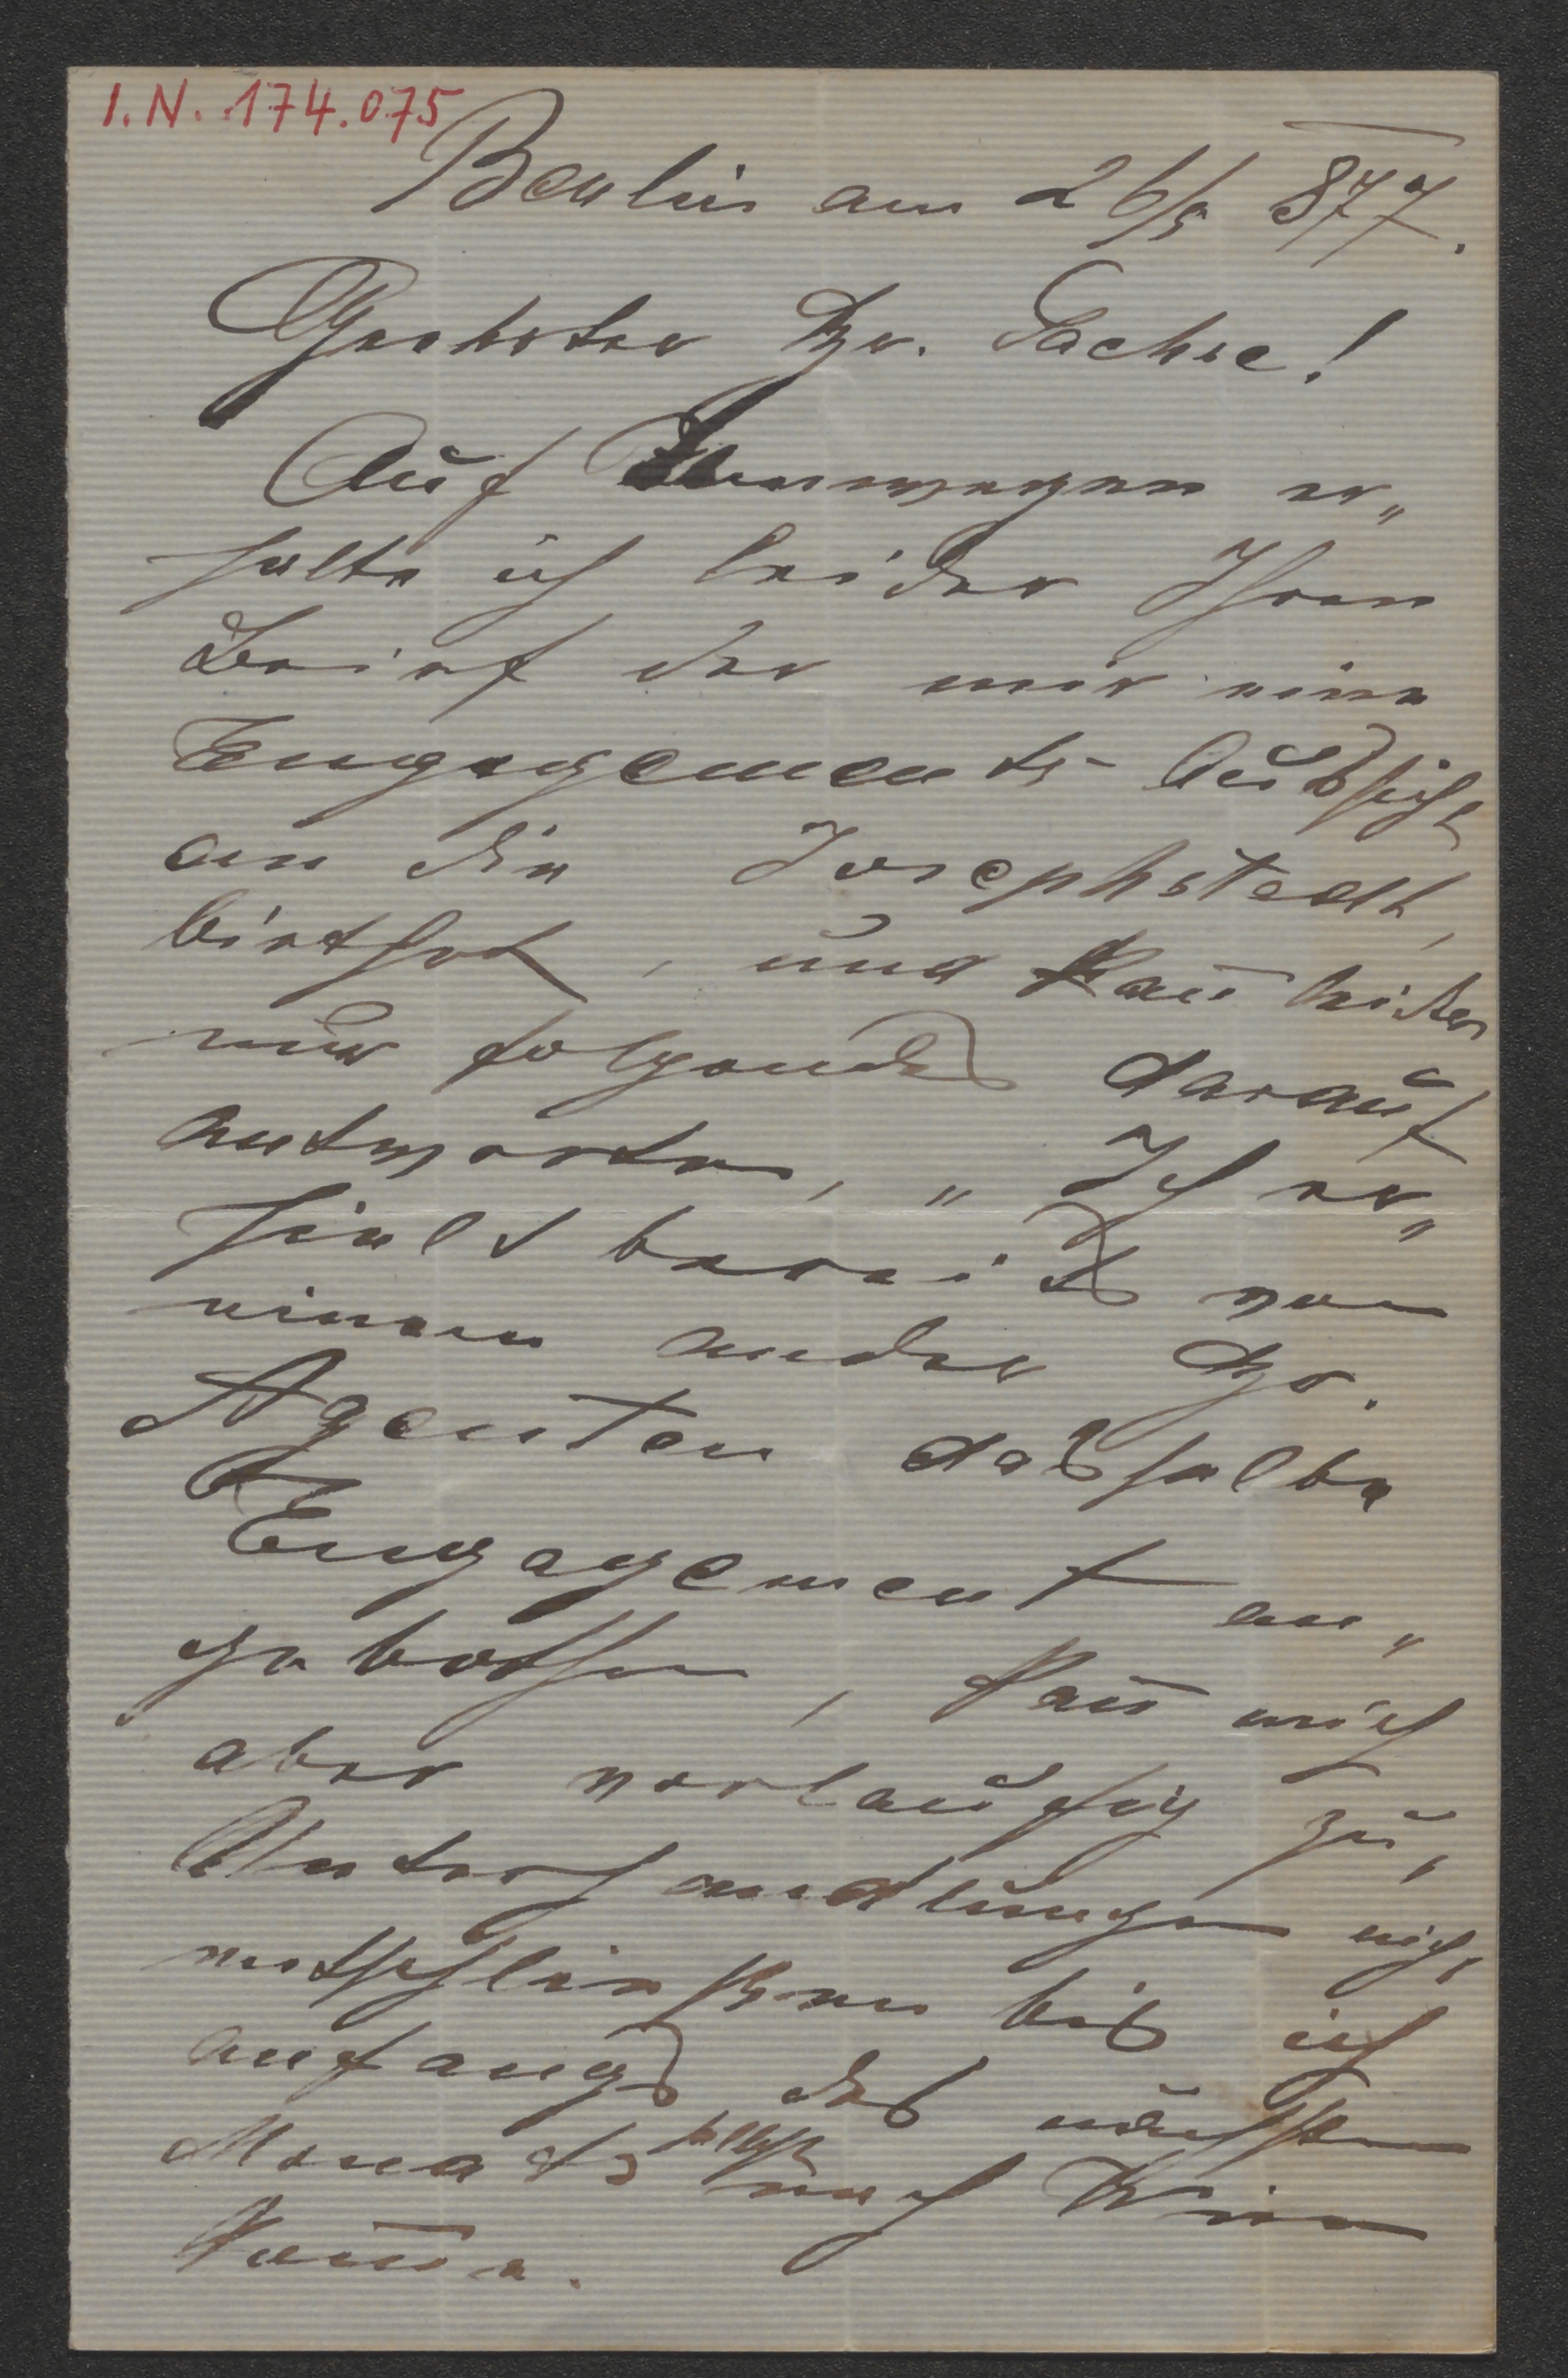 I.N. 174.075
Berlin am 26/5 877.
Geehrter Hr. Sachse!
Auf Umwegen er„
halte ich leider Ihren
Brief der mir eine
Engagements-Außsicht
an die Josephstadt,
biethet, und kan̄ leider
nur folgendes darauf
antworten, „Ich er„
hielt bereits von
einem ander Hr.
Agenten daßselbe
Engagement an„
gebothen, kan̄ mich
aber vorlaüfig zu,
Unterhandlungen nicht
entschließen bis ich
anfangs des nächsten
Monats selbst nach Wien
kom̄e.